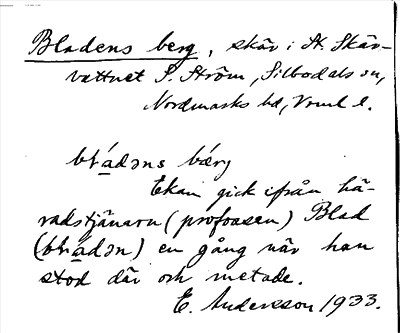 Bladens berg, skär i St. Skär-
vattnet S. Ström, Silbodals sn,
Nordmarks hd, Vrml l.
bládəns bǽrj
Ekan gick ifrån hä-
radstjänaren (profossen) Blad
(bládən) en gång när han
stod där och metade.
E. Andersson 1933.